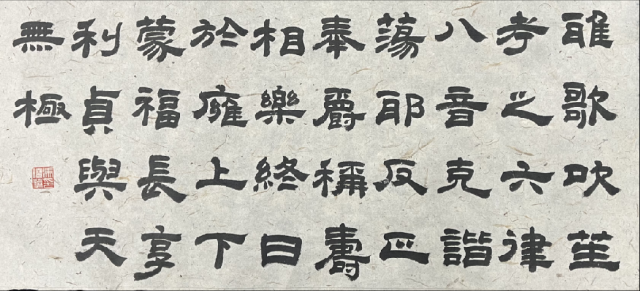 雅歌吹笙
考之六律
八音克諧
蕩耶反正
奉爵稱壽
相樂終日
於廱上下
蒙福長享
利貞與天
無極